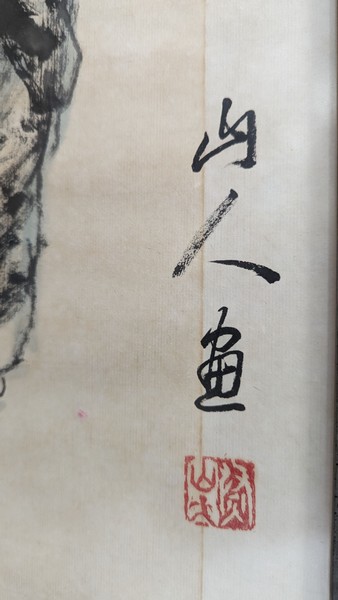 山人畫